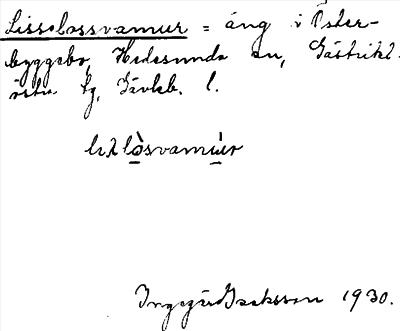 Lisselossvamur = äng i Öster-
byggebo, Hedesunda sn, Gästrikl.
östra tg, Gävleb. l.
Ingegärd Isaksson 1930.